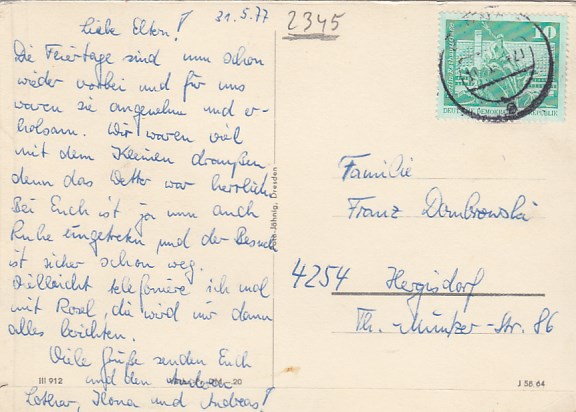 31.5.77
2345
Liebe Eltern!
Die Feiertage sind nun schon
wieder vorbei und für uns
waren sie angenehm und er-
holsam. Wir waren viel
mit dem Kleinen draußen
denn das Wetter war herrlich.
Bei Euch ist ja nun auch
Ruhe eingetreten und der Besuch
ist sicher schon weg.
Vielleicht telefoniere ich mal
mit Rosel, die wird mir dann
alles berichten.
Viele Grüße senden Euch
und den anderen
Lothar, Ilona und Andreas!
III 912
20
Foto Jähnig, Dresden
10
Familie
Franz Dombrowski
4254 Hergisdorf
Th.-Müntzer-Str. 86
J 58 64